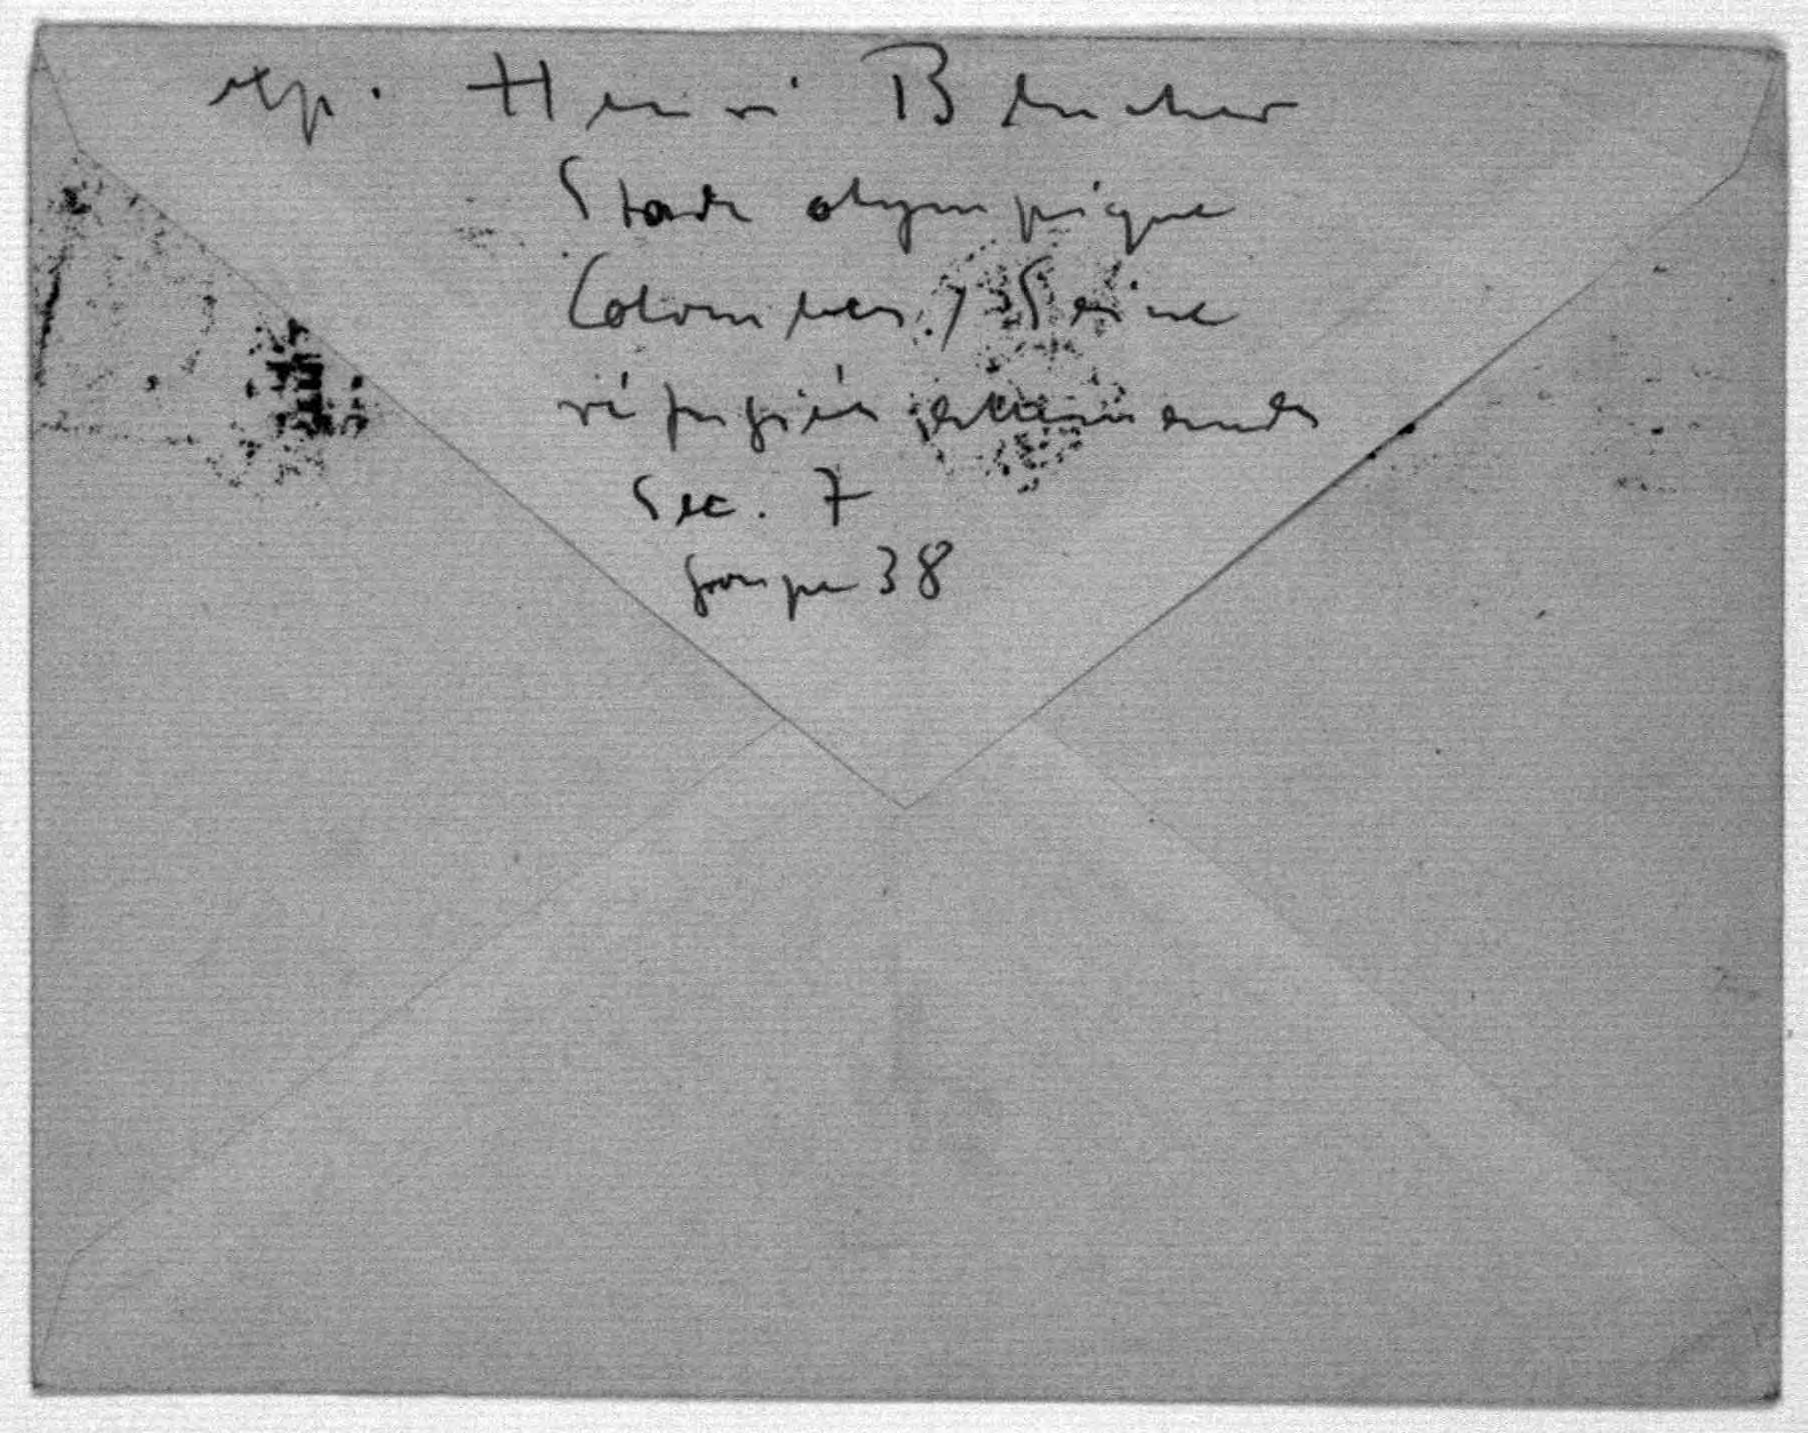 exp. Henri Blücher
Stade olympique
Colombes / Seine
réfugiés allemands
Sec. 7
groupe 38